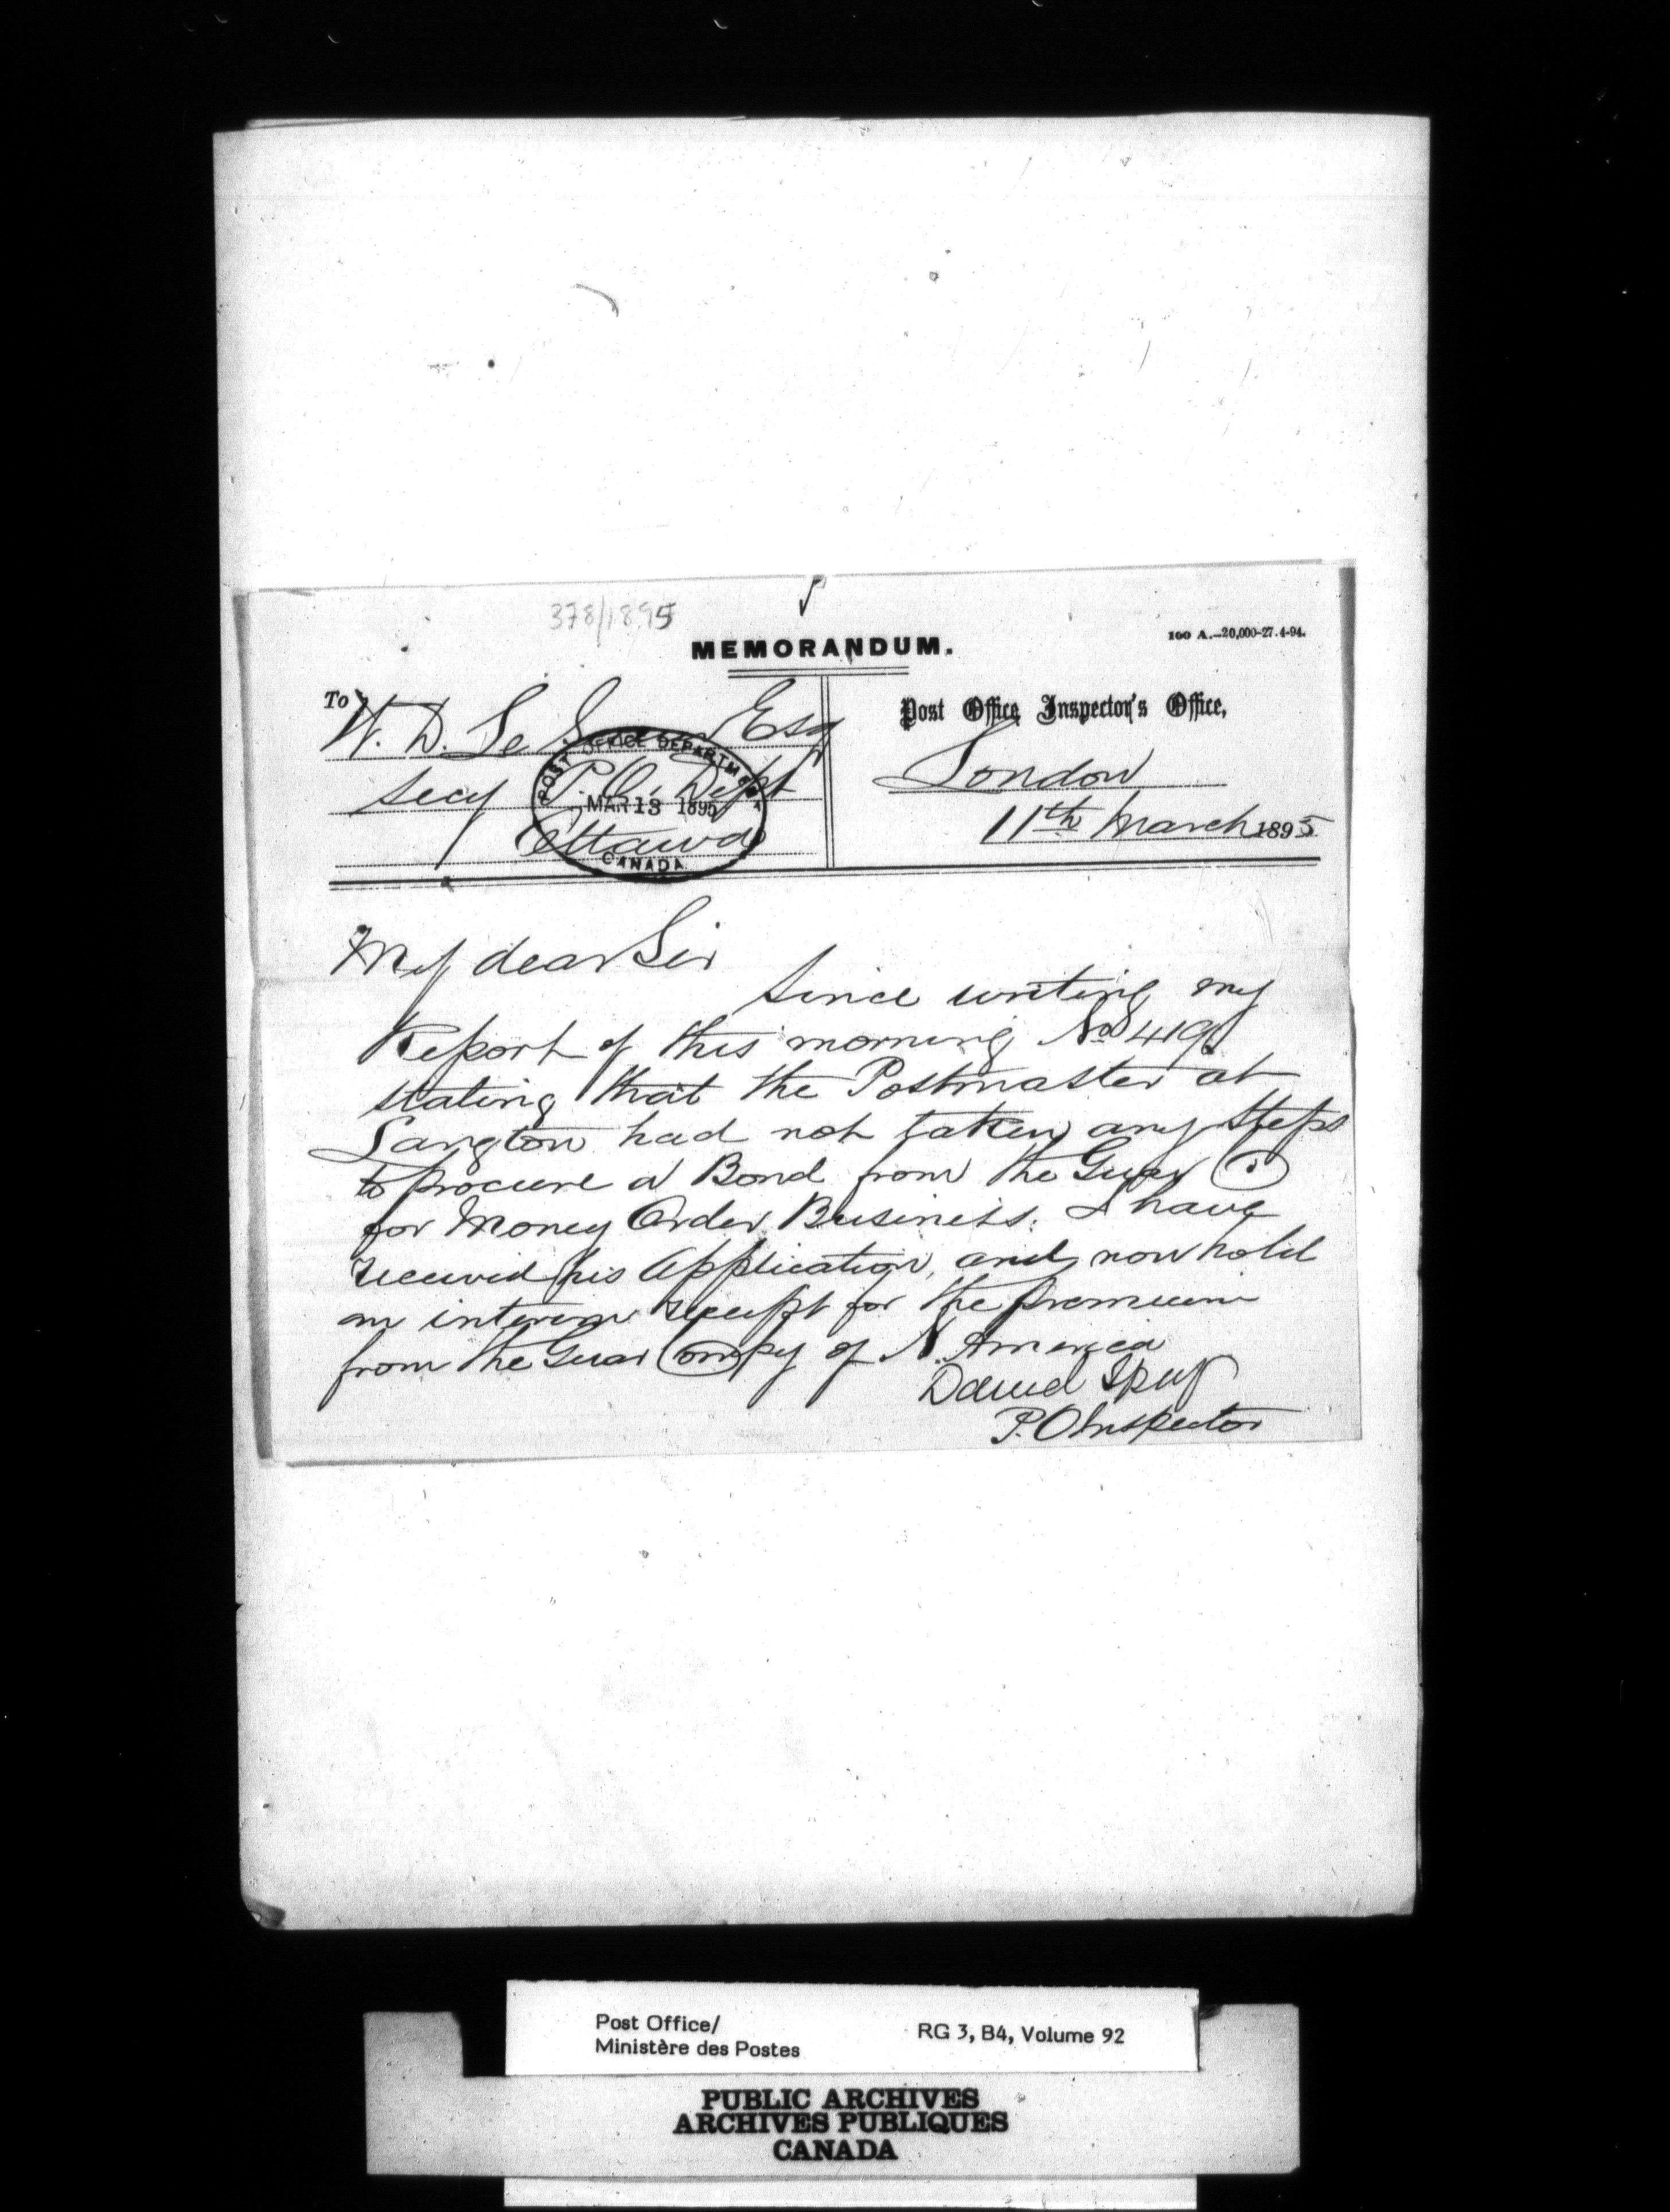 378/1895
MEMORANDUM.
100 A.—20,000-27.4-94.
To
W. D. Le Sueur Esq
Secy P. O. Dept
Ottawa
POST OFFICE DEPARTMENT
MAR 13 1895
CANADA
Post Office Inspector's Office,
London
11th March 1895
My dear Sir
Since writing my
Report of this morning No 419
stating that the Postmaster at
Langton had not taken any steps
to procure a Bond from the Guar
for Money Order Business. I have
received his application, and now hold
an interim receipt for the premium
from the Guar Compy of N. America
David Spry
P.O Inspector
Post Office/
Ministère des Postes
RG 3, B4, Volume 92
PUBLIC ARCHIVES
ARCHIVES PUBLIQUES
CANADA